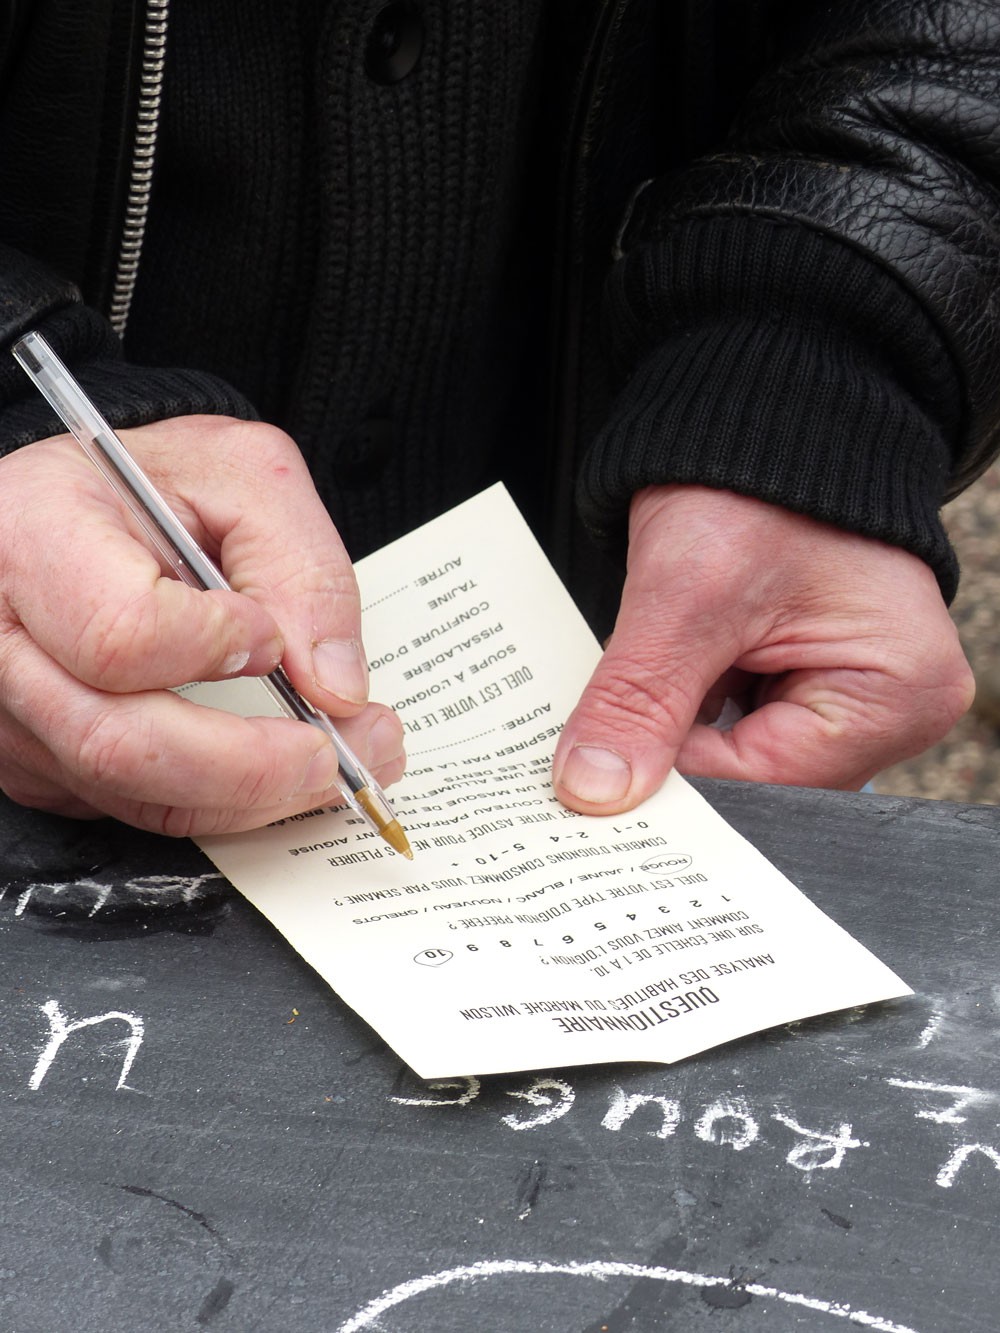 QUESTIONNAIRE
ANALYSE DES HABITUÉS DU MARCHÉ WILSON
SUR UNE ÉCHELLE DE 1 À 10.
COMMENT AIMEZ VOUS L'OIGNON ?
1 2 3 4 5 6 7 8 9 10
QUEL EST VOTRE TYPE D'OIGNON PRÉFÉRÉ ?
ROUGE / JAUNE / BLANC / NOUVEAU / GRELOTS
COMBIEN D'OIGNONS CONSOMMEZ VOUS PAR SEMAINE ?
0-1 2-4 5-10 +
EST VOTRE ASTUCE POUR NE PLEURER
COUTEAU PARFAITEMENT AIGUISÉ
UN MASQUE DE PLONGÉE
UNE ALLUMETTE À BRÛLÉE
LES DENTS
RESPIRER PAR LA
AUTRE:
QUEL EST VOTRE LE
SOUPE À L'OIGNON
PISSALADIÈRE
CONFITURE D'
TAJINE
AUTRE:
Rouges